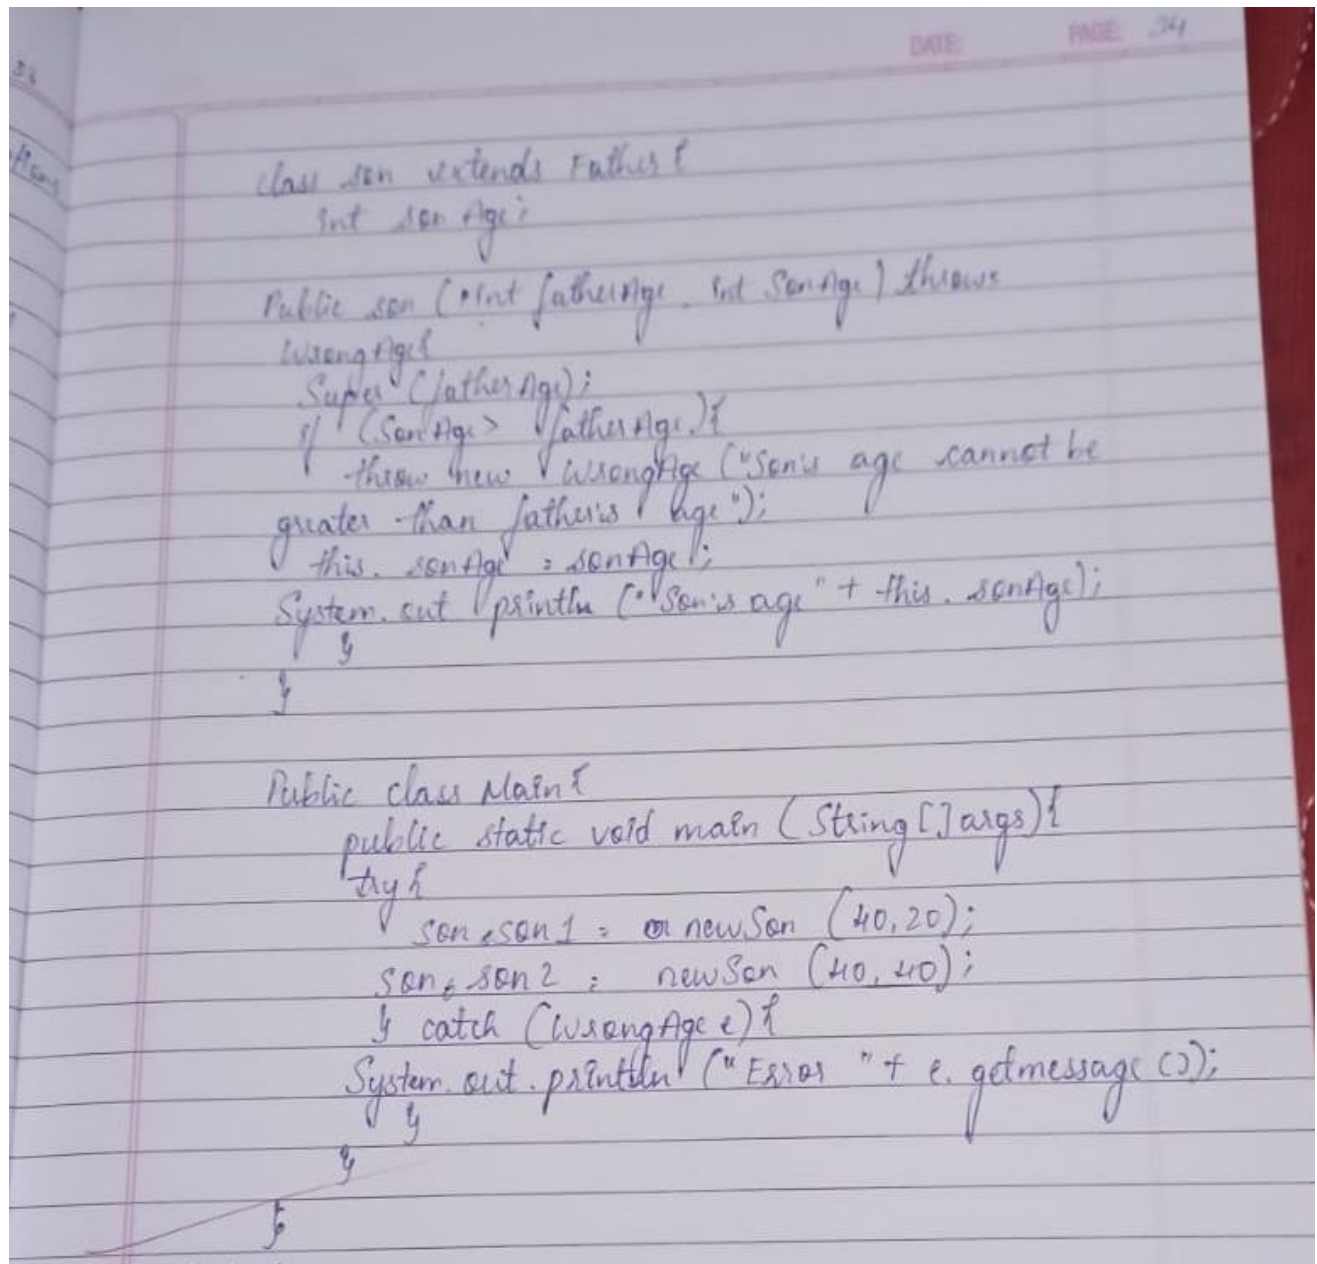 DATE: PAGE: 34
class son extends Father {
int son Age;
Public son (int fatherAge int SonAge) throws
WrongAge{
Super (fatherAge);
if (SonAge > fatherAge){
throw new WrongAge ("Son's age cannot be
greater than father's age");
this. sonAge = sonAge;
System. out println ("Son's age" + this. sonAge);
}
}
Public class Main{
public static void main (String [] args){
try {
son son1 = newSon (40,20);
son son2 = newSon (40,40);
} catch (WrongAge e){
System.out.println ("Error "+ e. getmessage ());
}
}
}